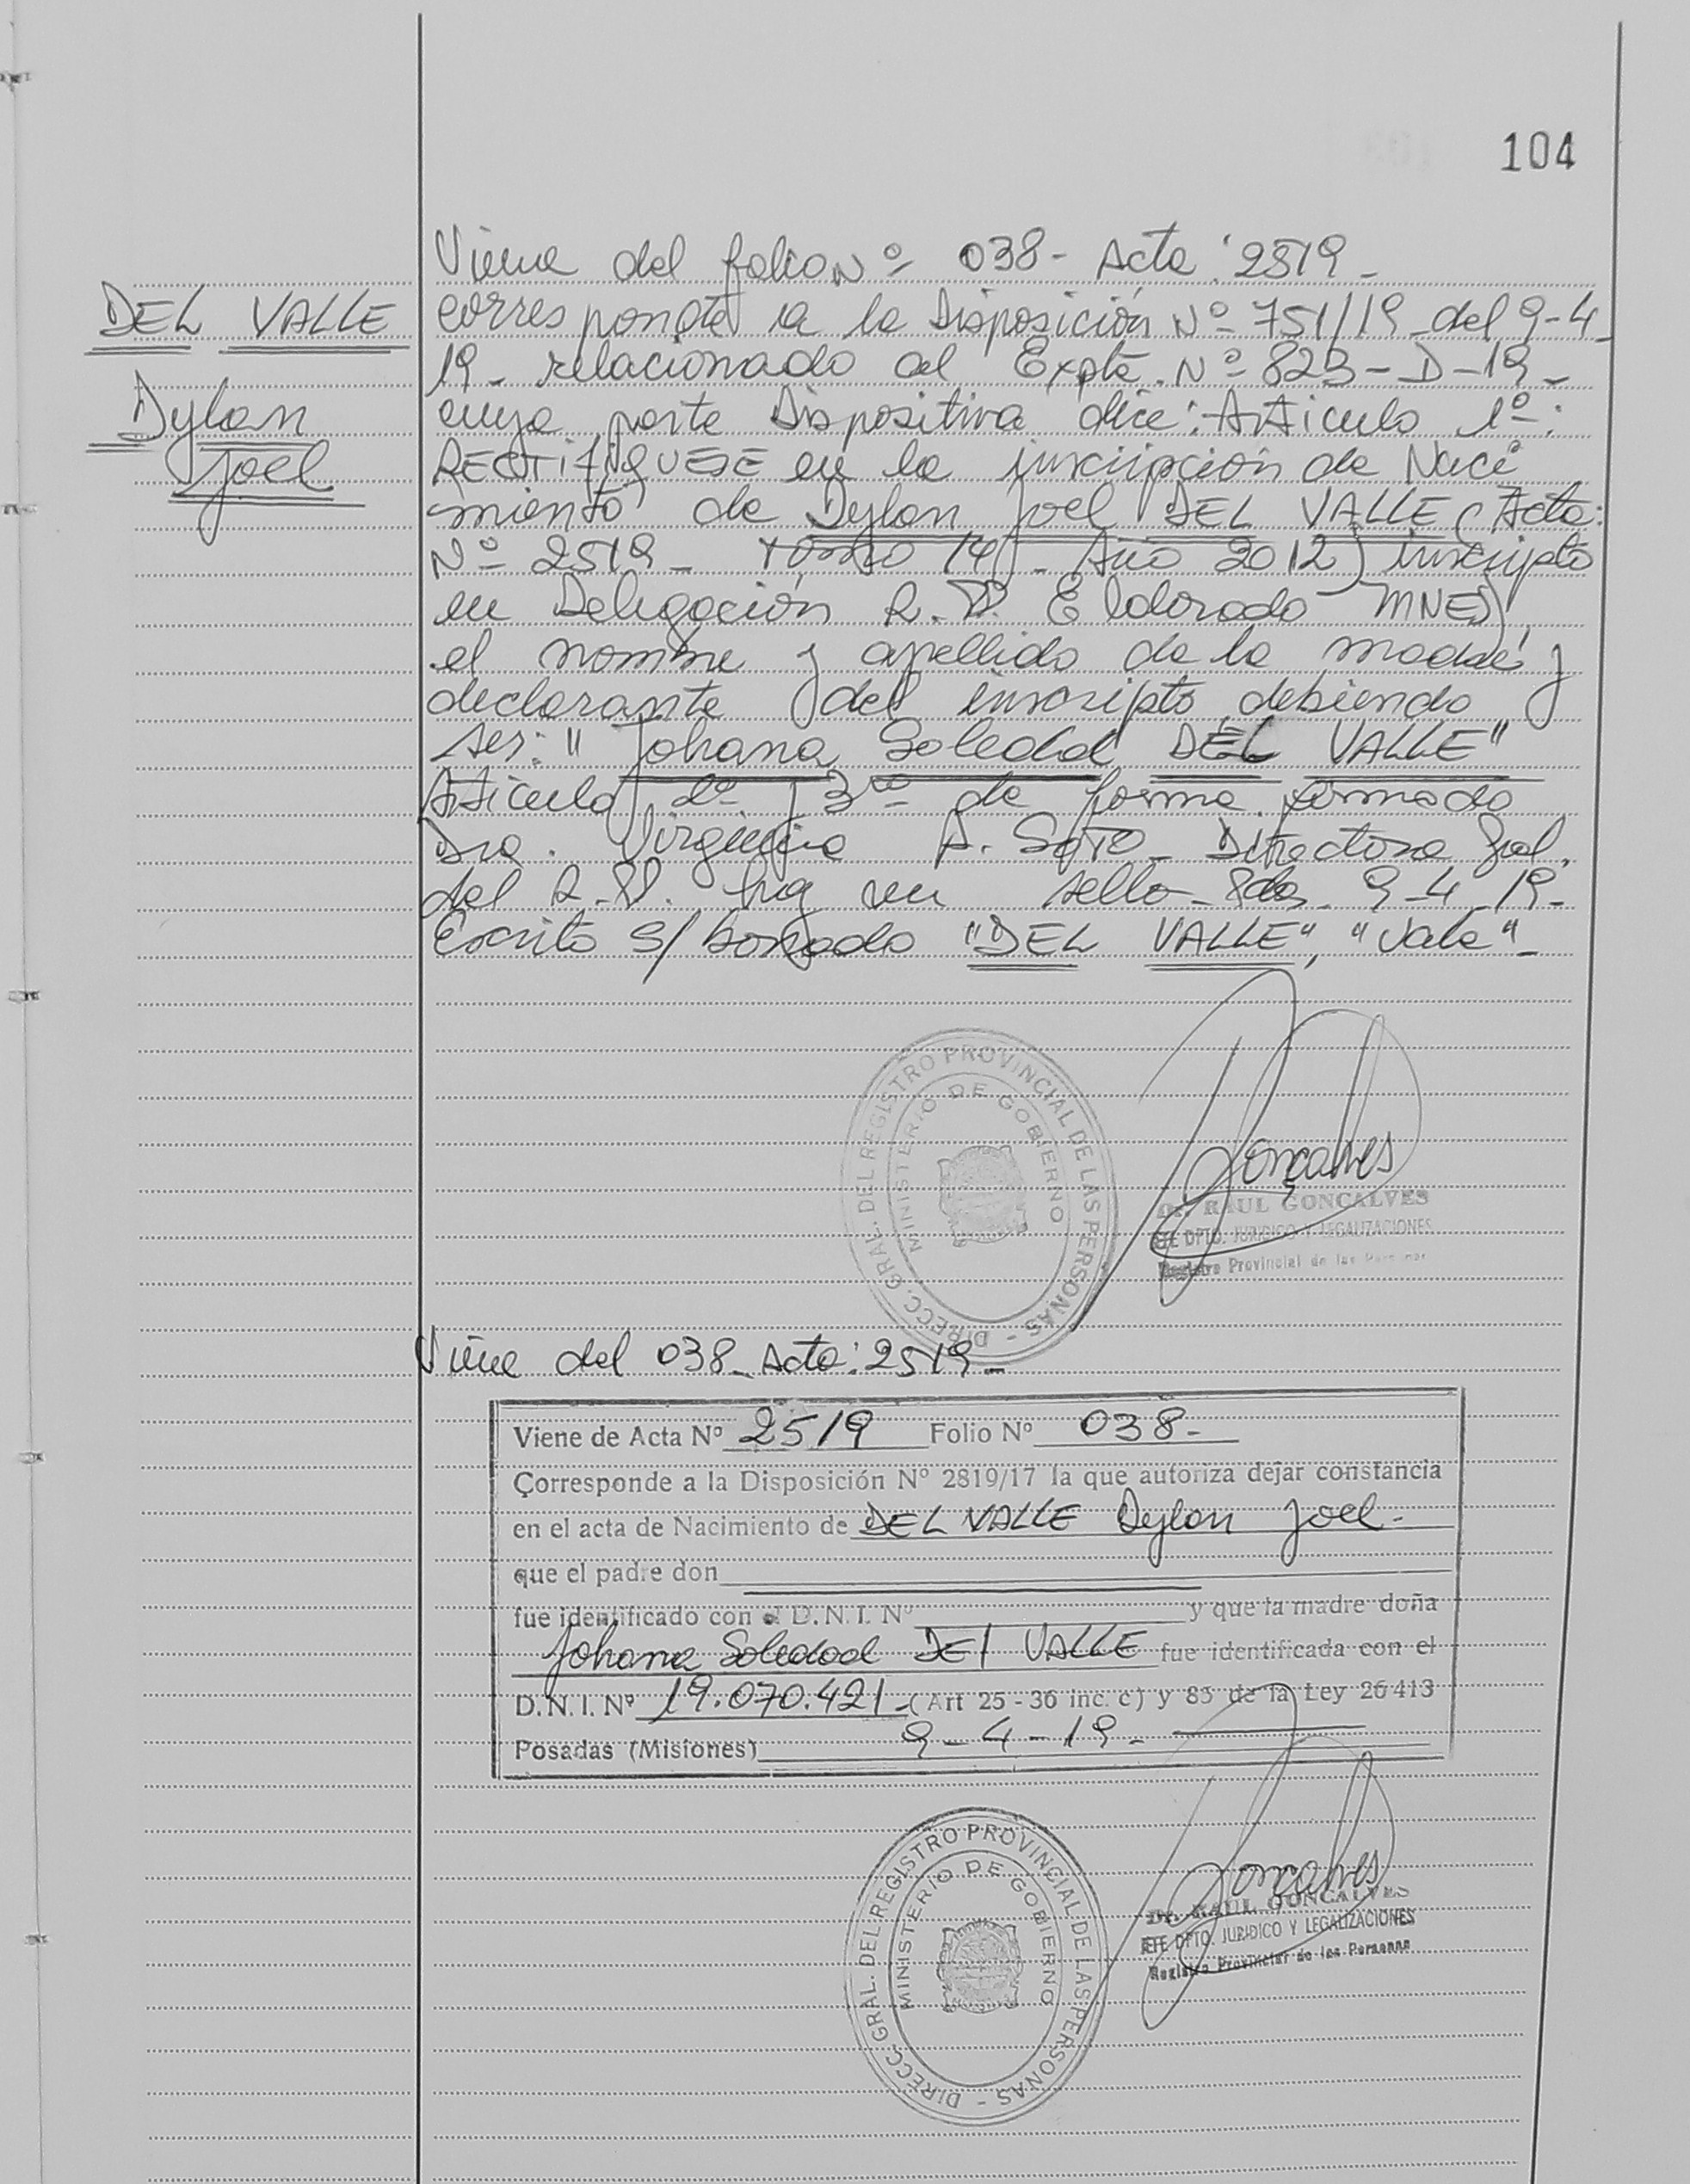 104
DEL VALLE
Dylan
Joel
Viene del folio Nº 038- Acta: 2519-
corresponde a la Disposición Nº 751/19 del 9-4-
19- relacionado al Expte. Nº 823-D-19-
cuya parte Dispositiva dice: Articulo 1º:
RECTIFIQUESE en la inscripción de Naci
miento de Dylan Joel DEL VALLE (Acta:
Nº 2519- Tomo 14)- Año 2012) inscripto
en Delegación R.P. Eldorado MNES,
el nombre y apellido de la madre y
declarante del inscripto debiendo
ser: "Johana Soledad DEL VALLE"
Articulo 2º y 3ro de forma firmado
Dra. Virginia A. SOTO- Directora Gral.
del R.P. hay un sello- Pdas. 9-4-19-
Escrito s/ borrado "DEL VALLE", "Vale"-
DIRECC. GRAL. DEL REGISTRO PROVINCIAL DE LAS PERSONAS -
MINISTERIO DE GOBIERNO
Gonçalves
Dr. RAUL GONCALVES
JEFE DPTO. JURIDICO Y LEGALIZACIONES
Registro Provincial de las Personas
Viene del 038- Acta: 2519-
Viene de Acta Nº 2519 Folio Nº 038-
Corresponde a la Disposición Nº 2819/17 la que autoriza dejar constancia
en el acta de Nacimiento de DEL VALLE Dylan Joel-
que el padre don
fue identificado con el D.N.I. Nº y que la madre doña
Johana Soledad DEL VALLE fue identificada con el
D.N.I. Nº 19.070.421- (Art 25 - 36 inc. c) y 83 de la Ley 26413
Posadas (Misiones) 9-4-19-
DIRECC. GRAL. DEL REGISTRO PROVINCIAL DE LAS PERSONAS -
MINISTERIO DE GOBIERNO
Gonçalves
Dr. RAUL GONCALVES
JEFE DPTO. JURIDICO Y LEGALIZACIONES
Registro Provincial de las Personas